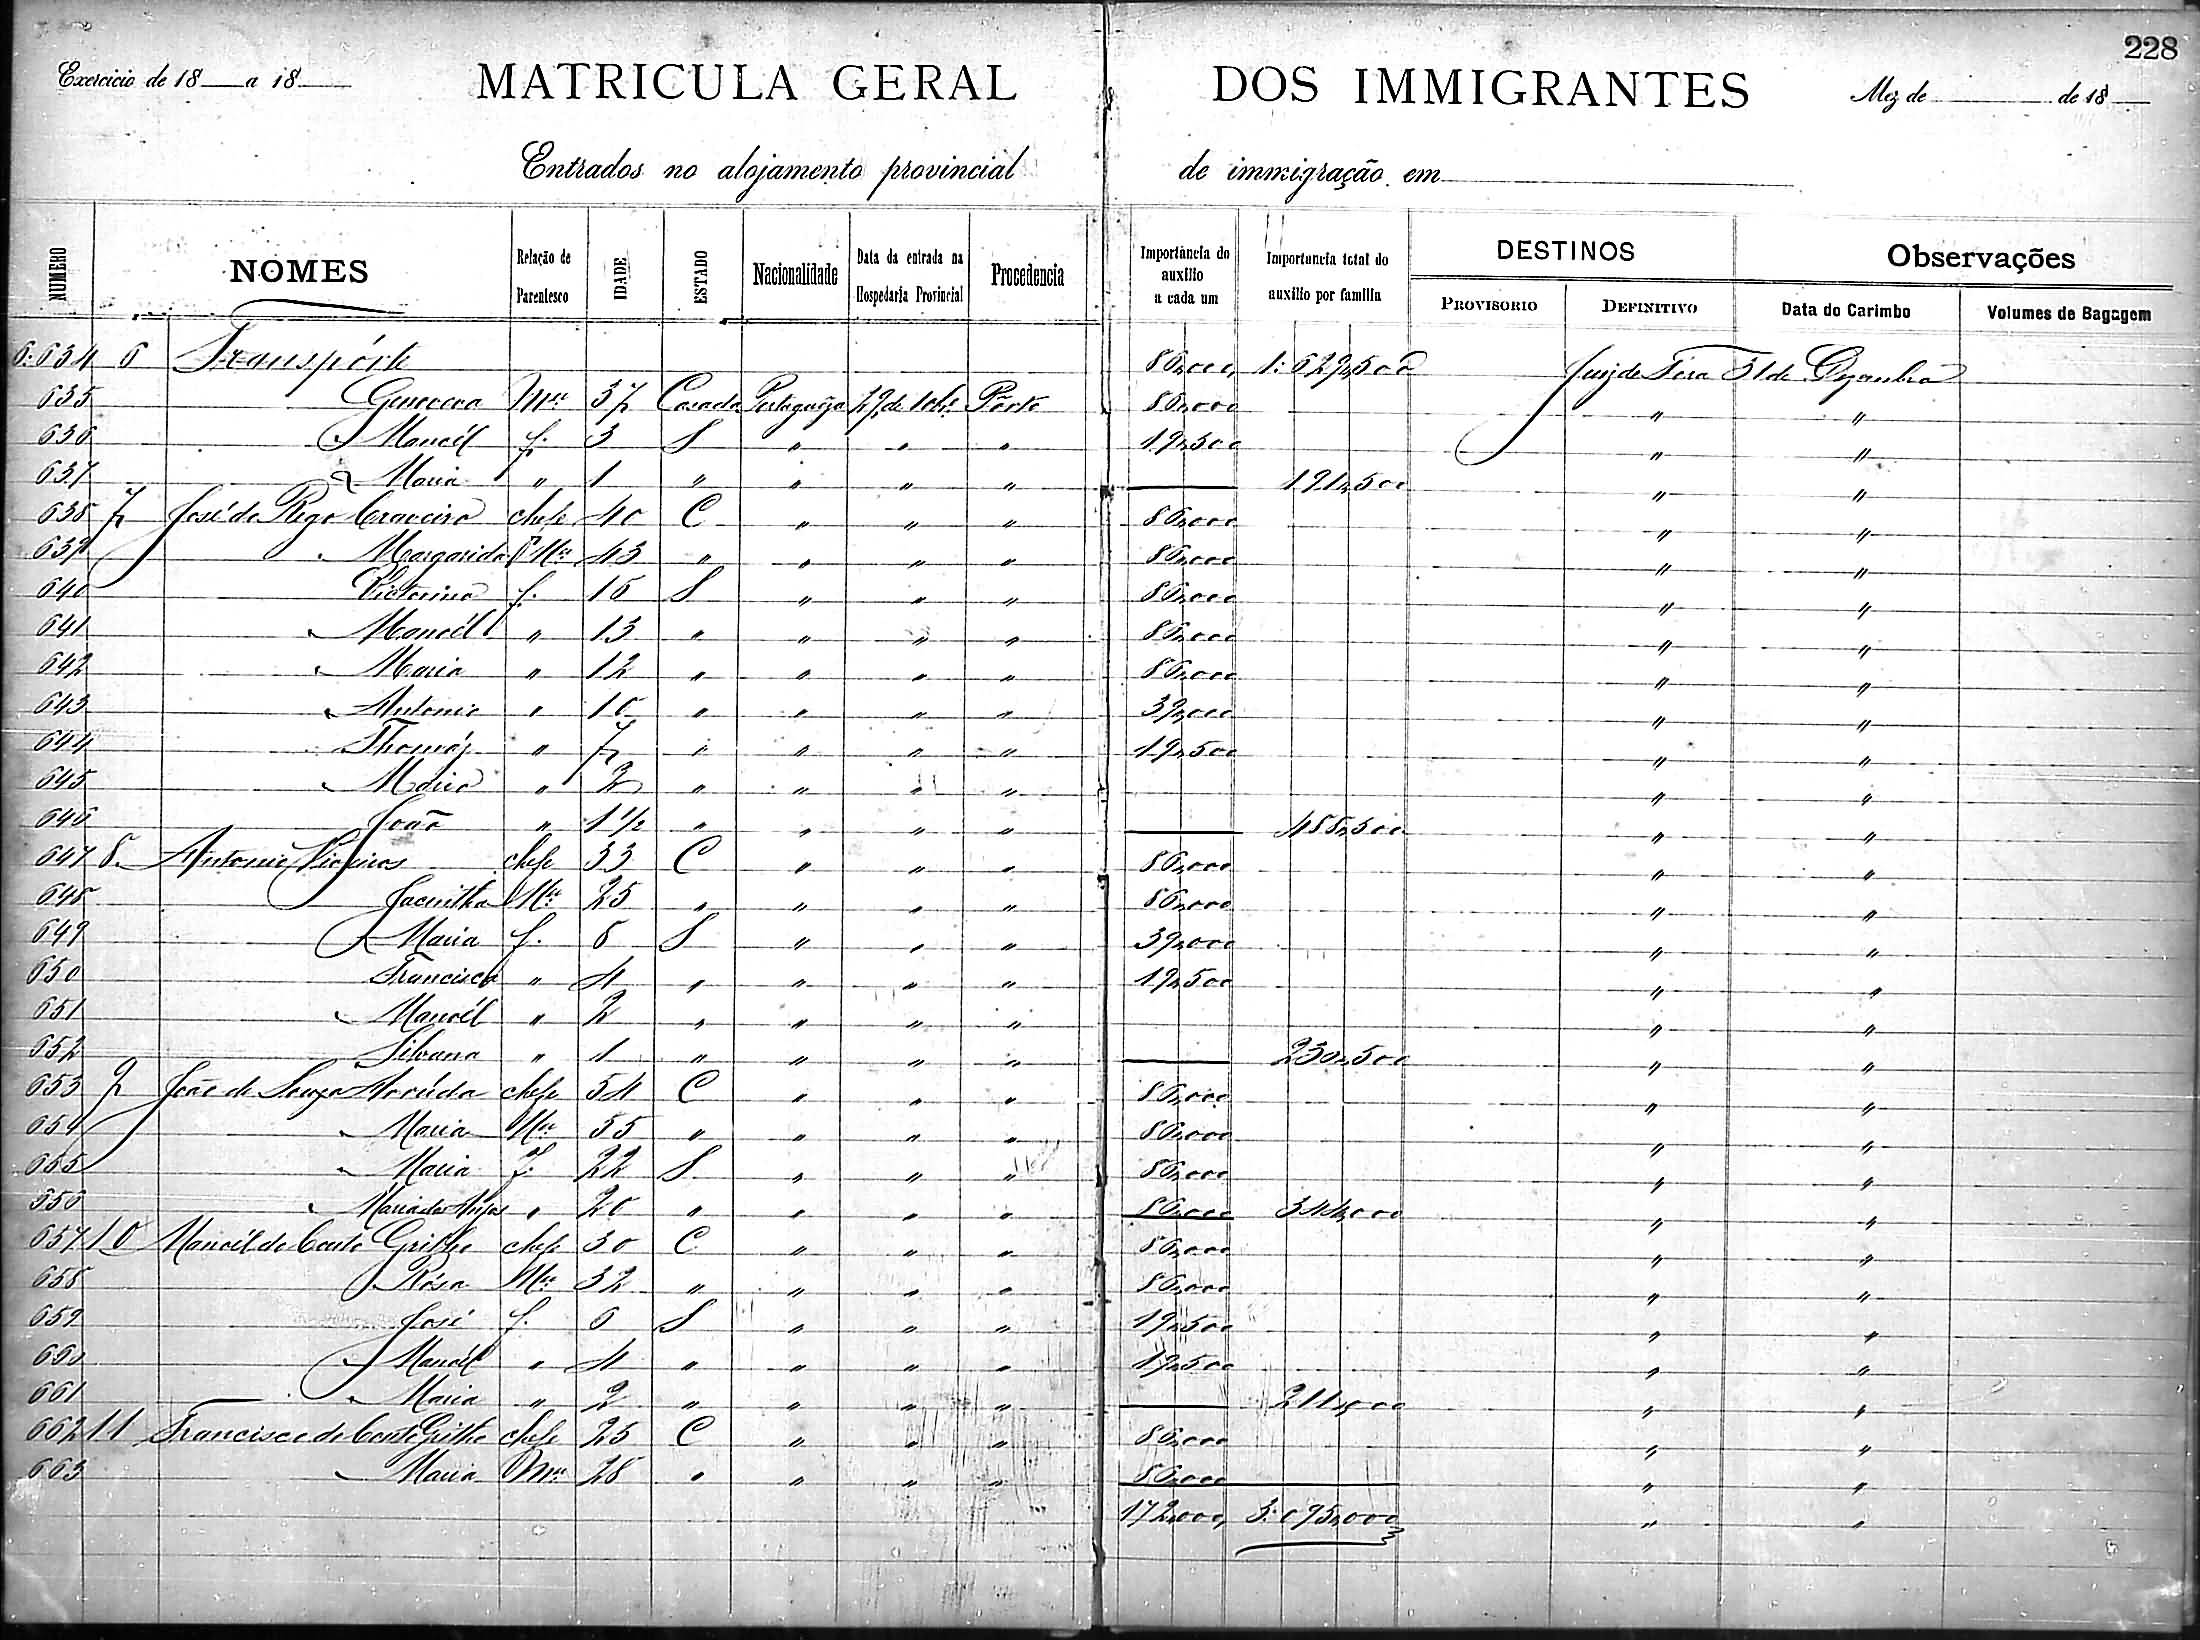 228
Exercicio de 18 a 18 MATRICULA GERAL DOS IMMIGRANTES Mez de de 18
Entrados no alojamento provincial de immigração em
NUMERO NOMES Relação de Parentesco IDADE ESTADO Nacionalidade Data da entrada na Hospedaria Provincial Procedencia Importancia do auxilio a cada um Importancia total do auxilio por familia DESTINOS PROVISORIO DEFINITIVO Observações Data do Carimbo Volumes de Bagagem
6.634 6 Transpórte 86,000, 1:629,500 Juiz de Fóra 31 de Dezembro
635 Mer 37 Casada Portugueza 29 de Porto 86,000 " "
636 " Manoél f. 3 S " " " 19,500 " "
637 " Maria " 1 " " " " 191,500 " "
638 7 José do Rego Craveiro chefe 40 C " " " 86,000 " "
639 " Margarida Mer 43 " " " " 86,000 " "
640 Victorina f. 16 S " " " 86,000 " "
641 " Manoél " 13 " " " " 86,000 " "
642 " Maria " 12 " " " " 86,000 " "
643 " Antonio " 10 " " " " 39,000 " "
644 " Thomáz " 7 " " " " 19,500 " "
645 " Maria " 2 " " " " " "
646 João " 1 1/2 " " " " 488,500 " "
647 8 Antonio chefe 33 C " " " 86,000 " "
648 Jacintha Mer 25 " " " " 86,000 " "
649 " Maria f. 8 S " " " 39,000 " "
650 Francisca " 4 " " " " 19,500 " "
651 " Manoél " 2 " " " " " "
652 Silvana " 1 " " " " 230,500 " "
653 9 João de Souza Arrúda chefe 54 C " " " 86,000 " "
654 " Maria Mer 55 " " " " 86,000 " "
655 " Maria f. 22 S " " " 86,000 " "
656 " Maria dos Anjos " 20 " " " " 86,000 344,000 " "
657 10 Manoél do Couto chefe 30 C " " " 86,000 " "
658 Rósa Mer 32 " " " " 86,000 " "
659 José f. 6 S " " " 19,500 " "
660 " Manoél " 4 " " " " 19,500 " "
661 " Maria " 2 " " " " 211,000 " "
662 11 Francisco do Couto chefe 25 C " " " 86,000 " "
663 " Maria Mer 28 " " " " 86,000 " "
172,000, 3:095,000 " "